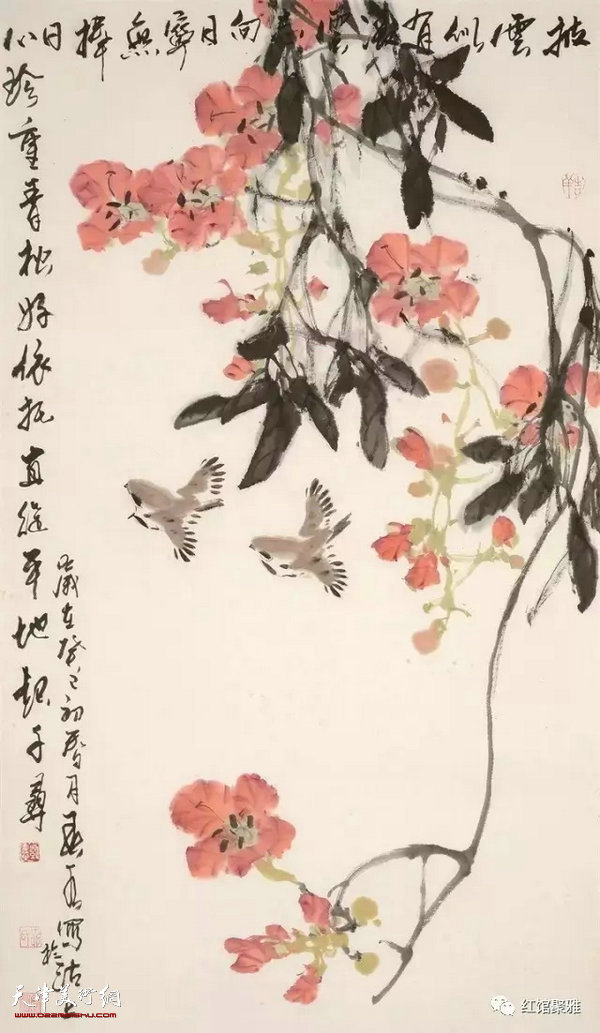 披雲似有凌雲志向日寧無捧日心
珍重青松好依托直從平地起千尋
歲在癸巳初
月
寫於沽上
天津美术网
红馆聚雅